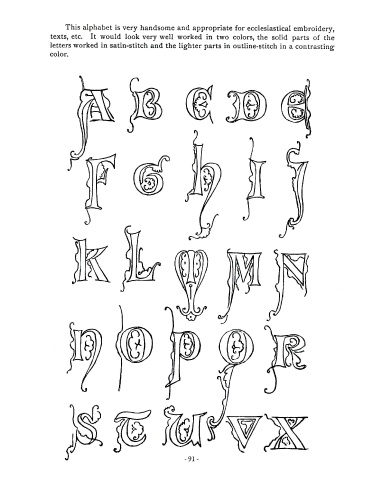 This alphabet is very handsome and appropriate for ecclesiastical embroidery,
texts, etc. It would look very well worked in two colors, the solid parts of the
letters worked in satin-stitch and the lighter parts in outline-stitch in a contrasting
color.
A B C D E
F G H I J
K L M M N
N O P Q R
S T U V X
-91-